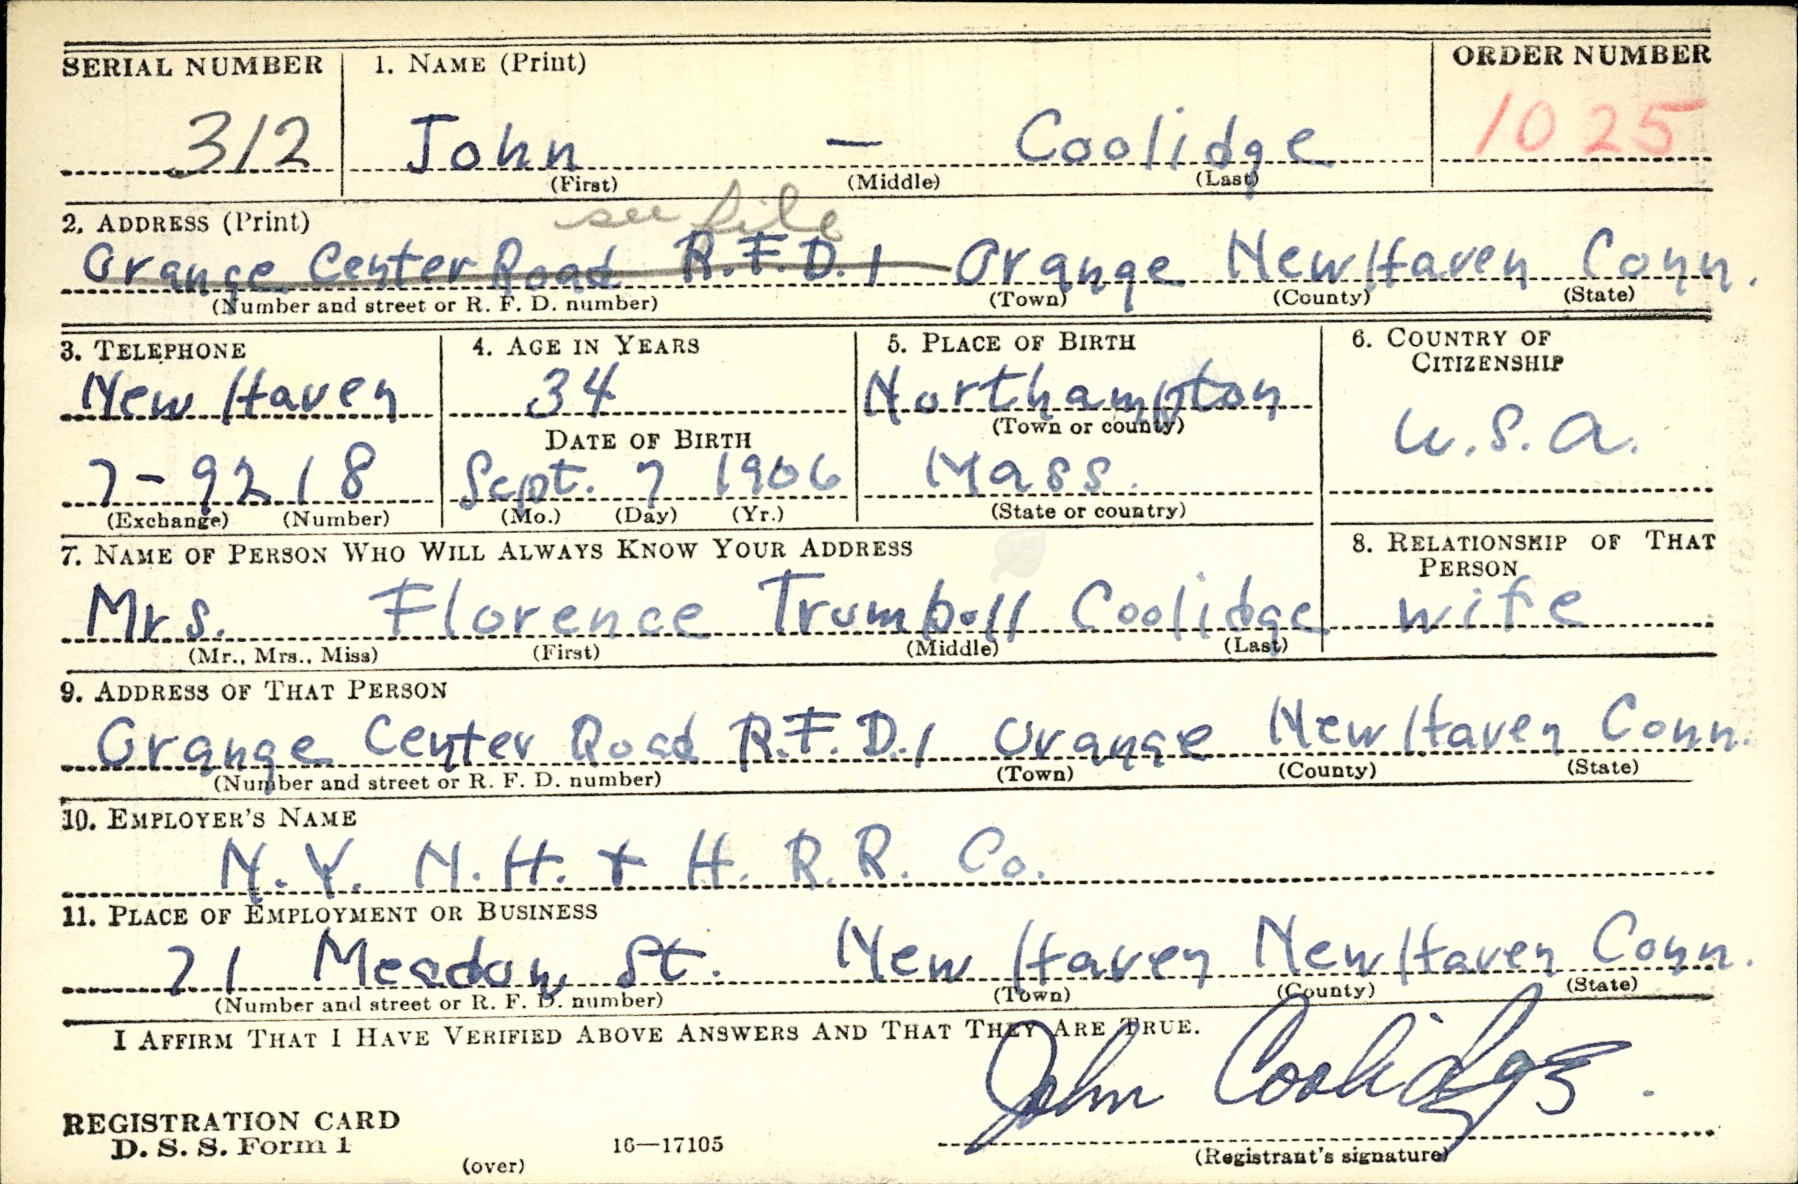 SERIAL NUMBER 1. NAME (Print) ORDER NUMBER
312 John — Coolidge 1025
(First) (Middle) (Last)
see file
2. ADDRESS (Print)
Orange Center Road R.F.D. 1 Orange New Haven Conn.
(Number and street or R. F. D. number) (Town) (County) (State)
3. TELEPHONE 4. AGE IN YEARS 5. PLACE OF BIRTH 6. COUNTRY OF
CITIZENSHIP
New Haven 34 Northampton
(Town or county)
U.S.A.
DATE OF BIRTH
7-9218 Sept. 7 1906 Mass.
(Exchange) (Number) (Mo.) (Day) (Yr.) (State or country)
7. NAME OF PERSON WHO WILL ALWAYS KNOW YOUR ADDRESS 8. RELATIONSHIP OF THAT
PERSON
Mrs. Florence Trumbull Coolidge wife
(Mr., Mrs., Miss) (First) (Middle) (Last)
9. ADDRESS OF THAT PERSON
Orange Center Road R.F.D. 1 Orange New Haven Conn.
(Number and street or R. F. D. number) (Town) (County) (State)
10. EMPLOYER'S NAME
N.Y. N.H. + H. R.R. Co.
11. PLACE OF EMPLOYMENT OR BUSINESS
71 Meadow St. New Haven New Haven Conn.
(Number and street or R. F. D. number) (Town) (County) (State)
I AFFIRM THAT I HAVE VERIFIED ABOVE ANSWERS AND THAT THEY ARE TRUE.
John Coolidge.
REGISTRATION CARD
D. S. S. Form 1 16—17105
(over) (Registrant's signature)